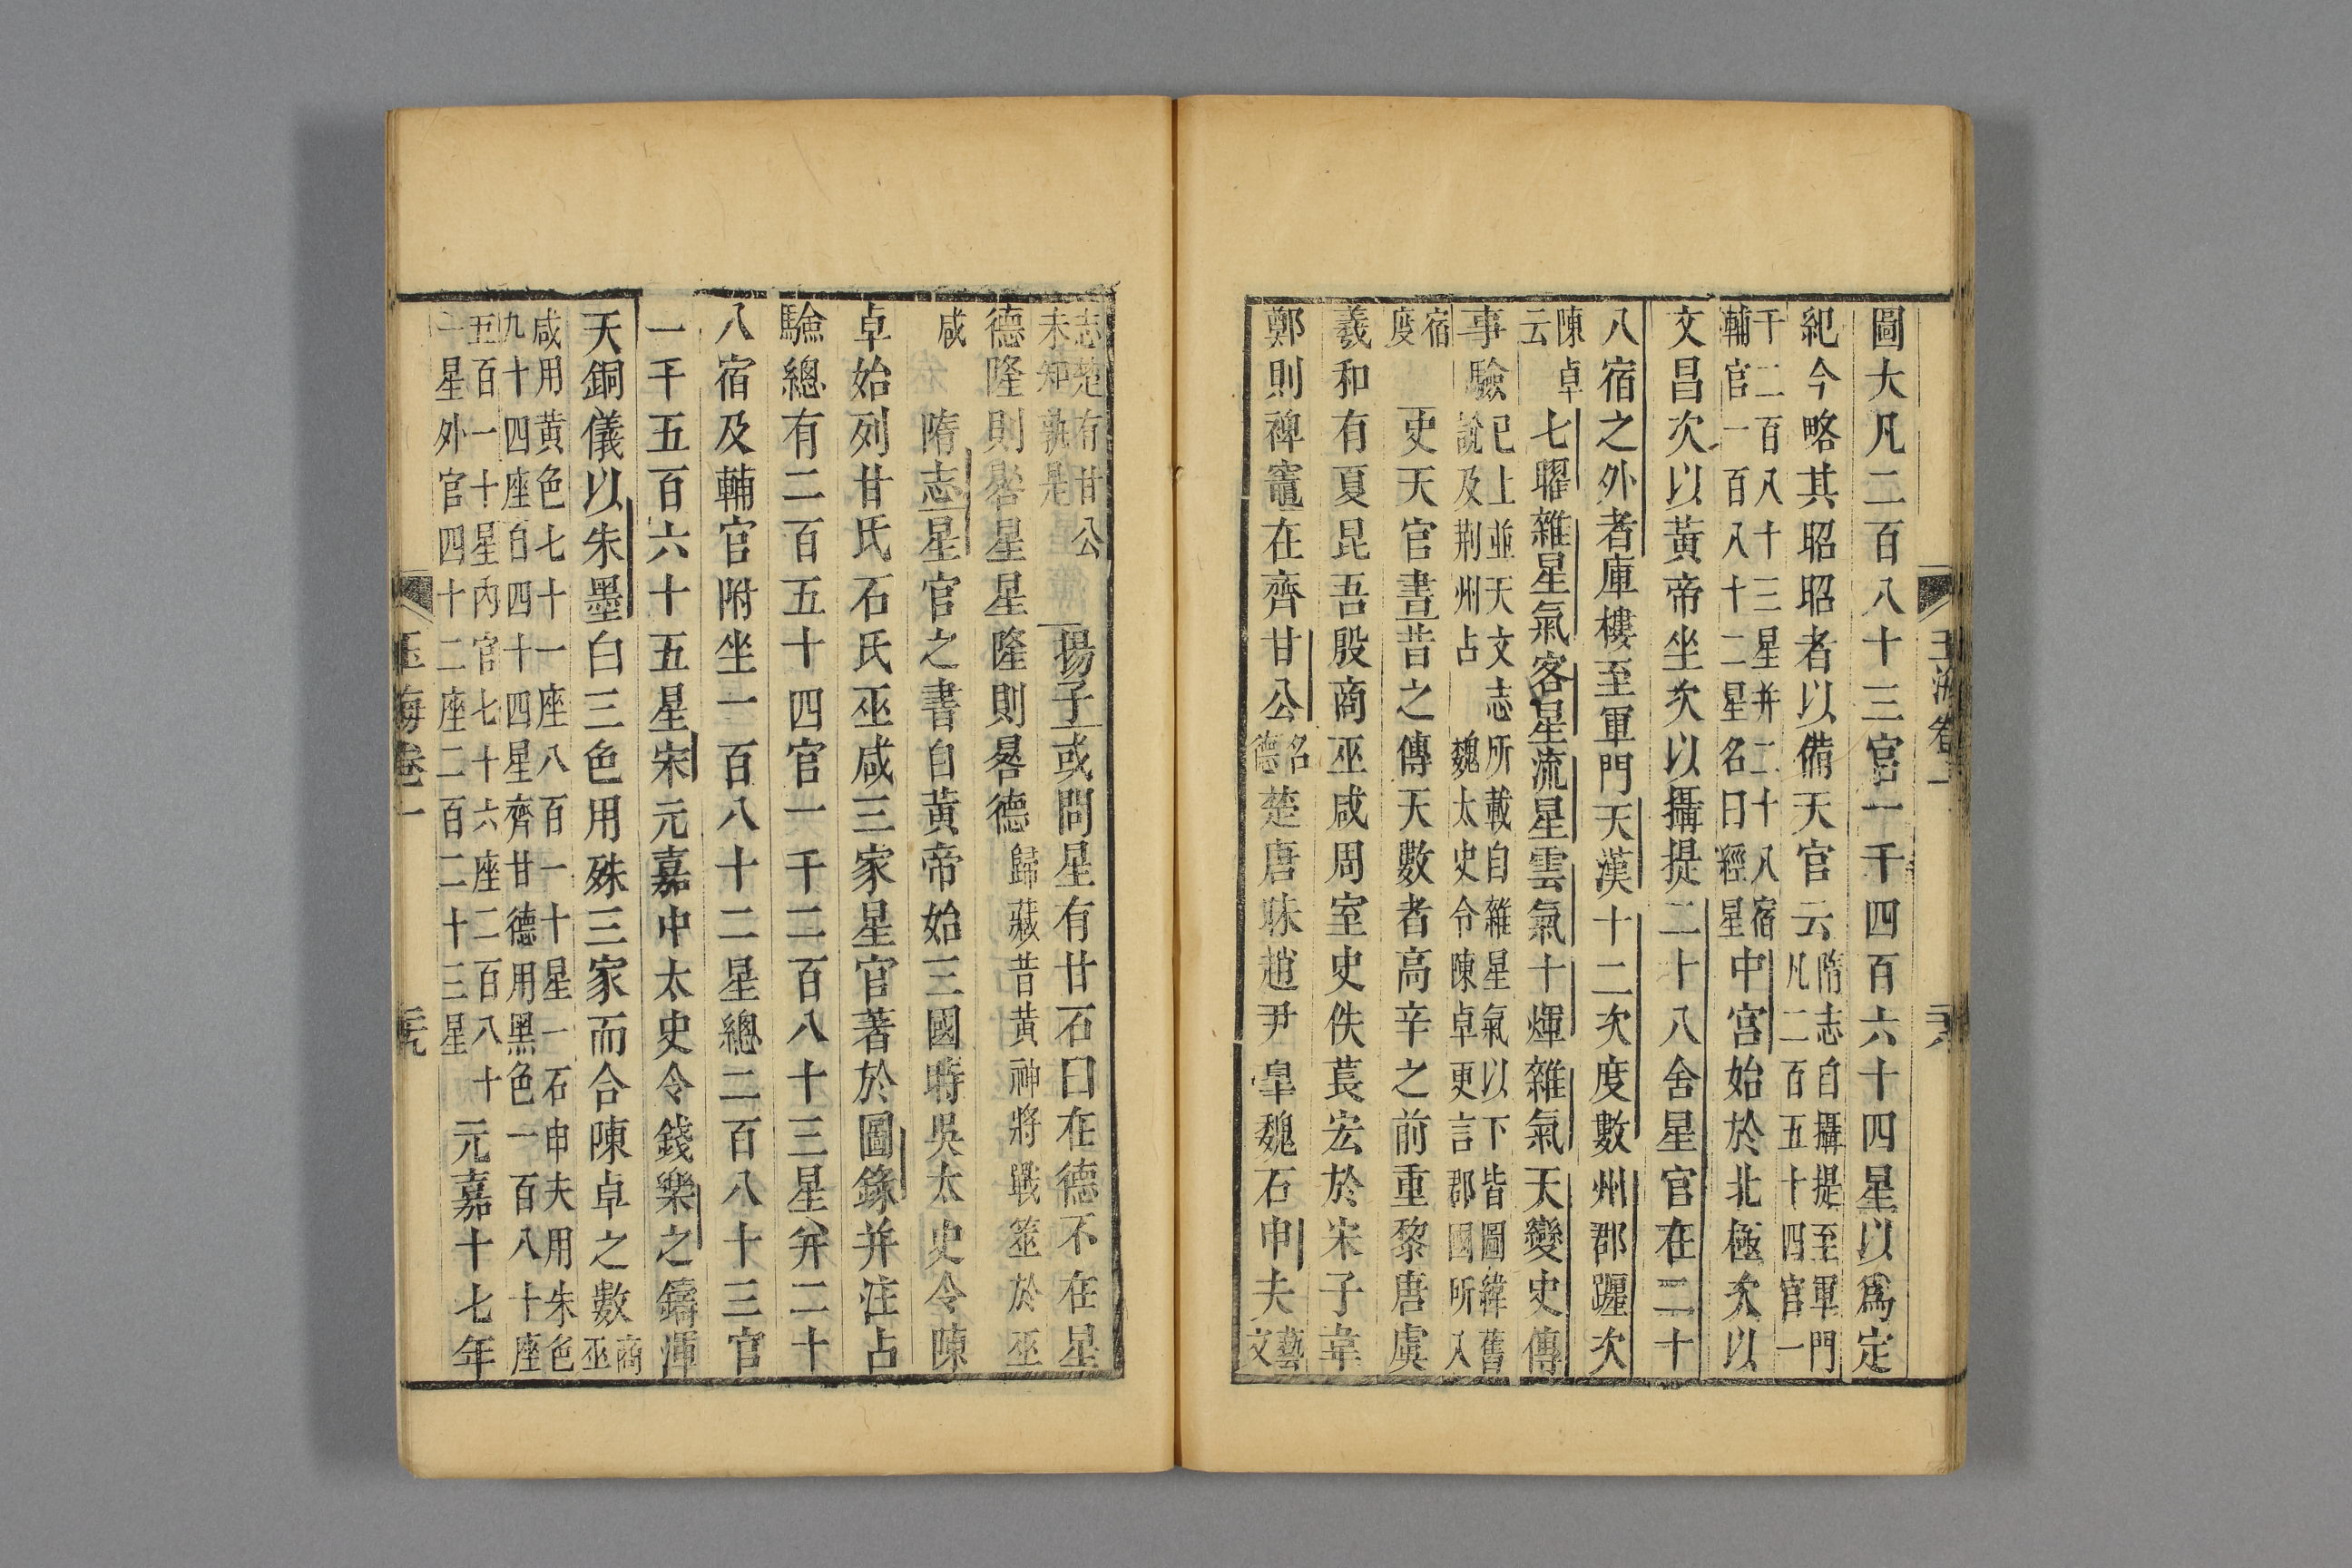 圖大凡二百八十三官一千四百六十四星以爲定
紀今略其昭昭者以備天官云隋志自攝提至軍門凡二百五十四官一
千二百八十三星并二十八宿輔官一百八十二星名曰經星中宮始於北極次以
文昌次以黃帝坐次以攝提二十八舍星官在二十
八宿之外者庫樓至軍門天漢十二次度數州郡躔次
陳卓云七曜雜星氣客星流星雲氣十煇雜氣天變史傳
事驗已上並天文志所載自雜星氣以下皆圖緯舊說及荆州占魏太史令陳卓更言郡國所入
宿度史天官書昔之傳天數者高辛之前重黎唐虞
羲和有夏昆吾殷商巫咸周室史佚萇宏於宋子韋
鄭則禆竈在齊甘公名德楚唐昧趙尹皐魏石申夫藝文
玉海卷一
志楚有甘公未知孰是揚子或問星有甘石曰在德不在星
德隆則晷星星隆則晷德歸藏昔黃神將戰筮於巫
咸隋志星官之書自黃帝始三國時吳太史令陳
卓始列甘氏石氏巫咸三家星官著於圖錄并注占
驗總有二百五十四官一千二百八十三星并二十
八宿及輔官附坐一百八十二星總二百八十三官
一千五百六十五星宋元嘉中太史令錢樂之鑄渾
天銅儀以朱墨白三色用殊三家而合陳卓之數商巫
咸用黃色七十一座八百一十星一石申夫用朱色九十四座白四十四星齊甘德用黑色一百八十座
五百一十星內官七十六座二百八十一星外官四十二座二百二十三星元嘉十七年
玉海卷一